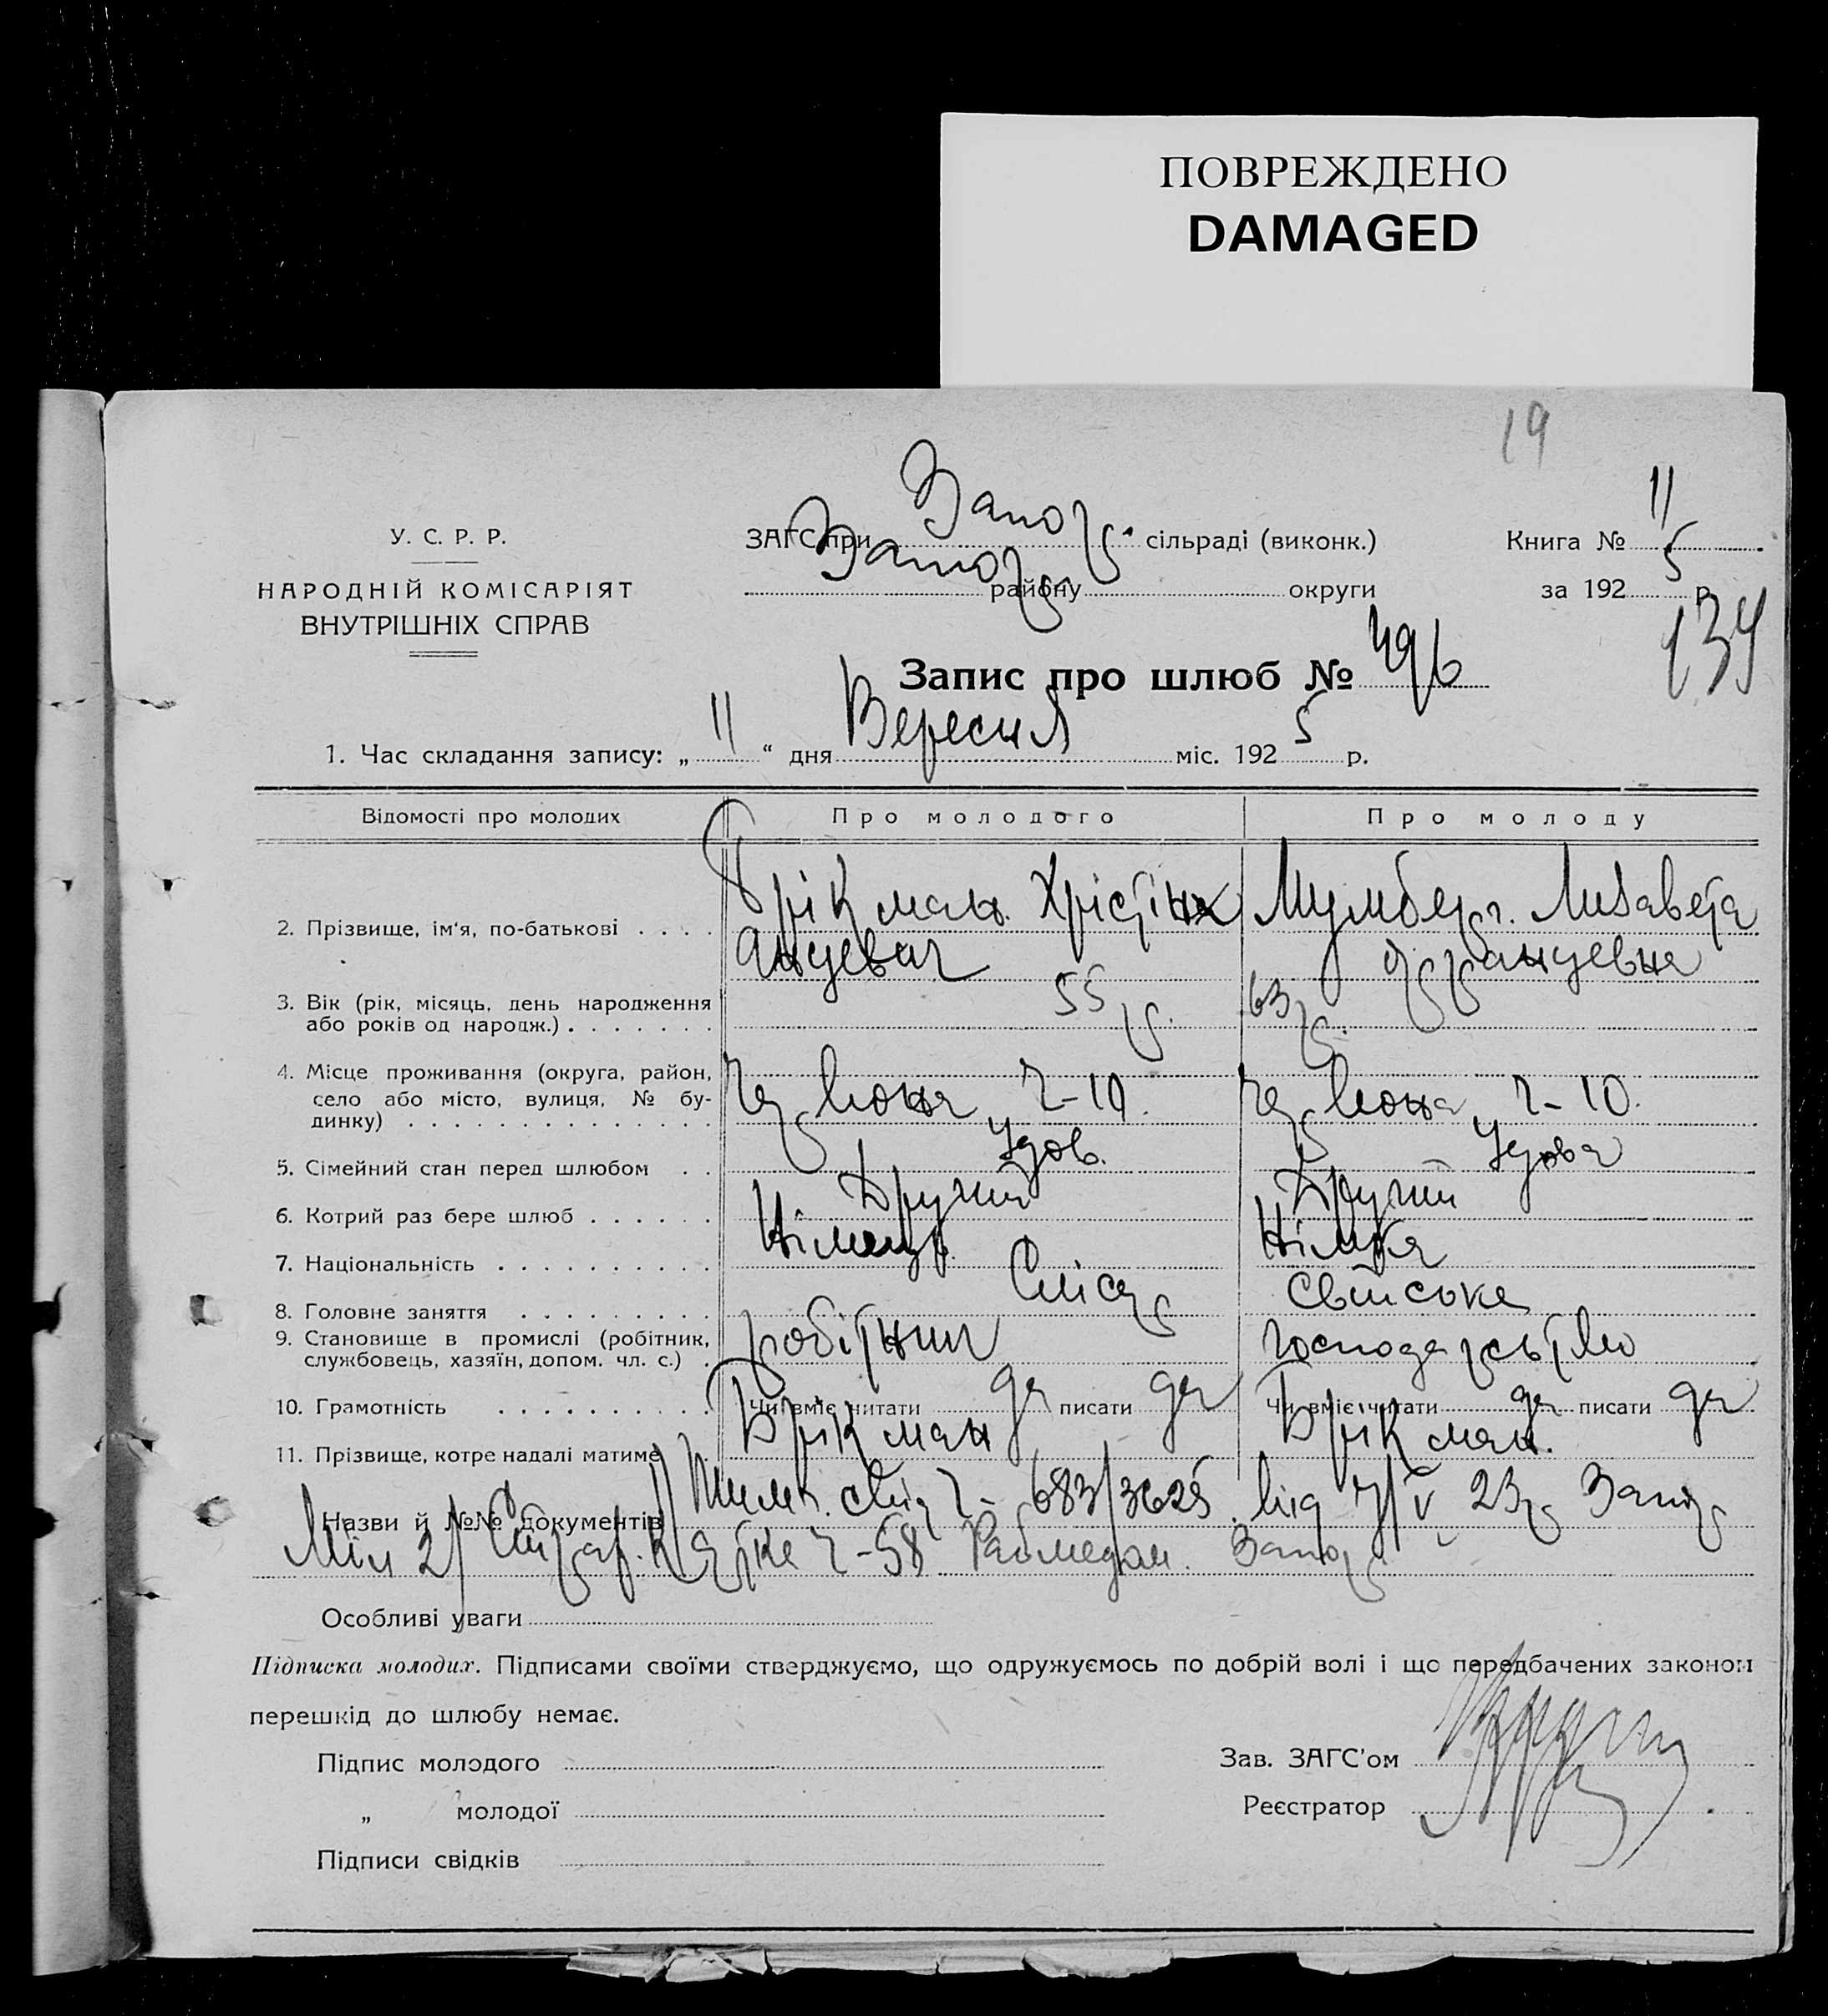 ПОВРЕЖДЕНО
DAMAGED
19
У. С. Р. Р.
НАРОДНІЙ КОМІСАРІЯТ
ВНУТРІШНІХ СПРАВ
ЗАГС при Запор. сільраді (виконк.)
Запор району округи
Книга № 11
за 1925 р.
134
Запис про шлюб № 496
1. Час складання запису: „11“ дня Вересня міс. 1925 р.
Відомості про молодих Про молодого Про молоду
2. Прізвище, ім'я, по-батькові . . . . Брікман Хрістіян Мумбер Лизавета
Андевич Францевна
3. Вік (рік, місяць, день народження
або років од народж.) . . . . . . . 55 р. 63 р.
4. Місце проживання (округа, район,
село або місто, вулиця, № бу-
динку) . . . . . . . . . . . . . . Червона ч-10. Червона ч-10.
5. Сімейний стан перед шлюбом . . Удов. Удова
6. Котрий раз бере шлюб . . . . . . Другий Другий
7. Національність . . . . . . . . . . Німець Німка
8. Головне заняття . . . . . . . . . Слісар Свійське
9. Становище в промислі (робітник,
службовець, хазяїн, допом. чл. с.) . робітник господарство
10. Грамотність . . . . . . . . . . Чи вміє читати да писати да Чи вміє читати да писати да
11. Прізвище, котре надалі матиме Брікман Брікман.
Назви й №№ документів 1/ свід ч- 683/3625 від 7/V 23 р Запор
Міл 2/ ч-58 Запор
Особливі уваги
Підписка молодих. Підписами своїми стверджуємо, що одружуємось по добрій волі і що передбачених законом
перешкід до шлюбу немає.
Підпис молодого Зав. ЗАГС'ом
„ молодої Реєстратор
Підписи свідків